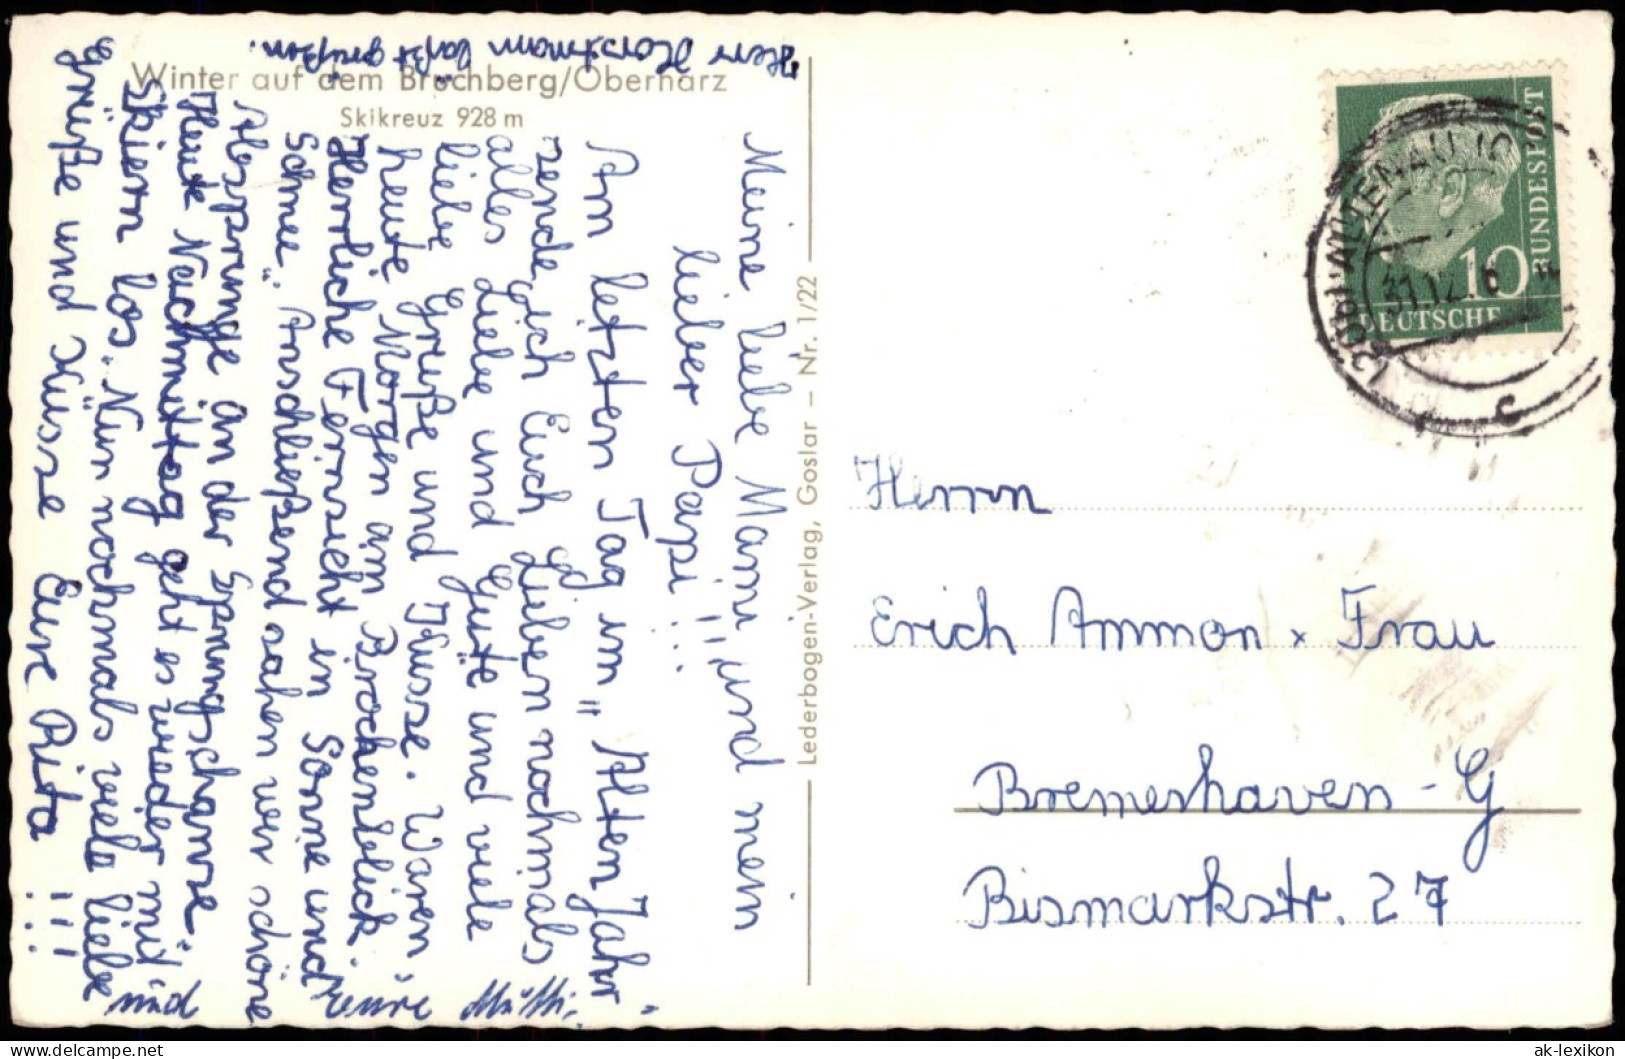 Winter auf dem Bröchberg/Oberharz
Skikreuz 928 m
Herr Horstmann läßt grüßen.
Meine liebe Mami und mein
lieber Papi!!!
Am letzten Tag im „Alten Jahr"
sende ich Euch Lieben nochmals
alles Liebe und Gute und viele
liebe Grüße und Küsse. Waren
heute Morgen am Brockenblick.
Herrliche Fernsicht in Sonne und
Schnee. Anschließend sahen wir schöne
Absprünge an der Sprungschanze.
Heute Nachmittag geht es wieder mit
Skiern los. Nun nochmals viele liebe
Grüße und Küsse Eure Rita!!!
und Eure Mutti.
Lederbogen-Verlag, Goslar – Nr. 1/22
DEUTSCHE BUNDESPOST
10
ALTENAU
31.12.6
c
Herrn
Erich Ammon x Frau
Bremerhaven-G
Bismarkstr. 27
ak-lexikon